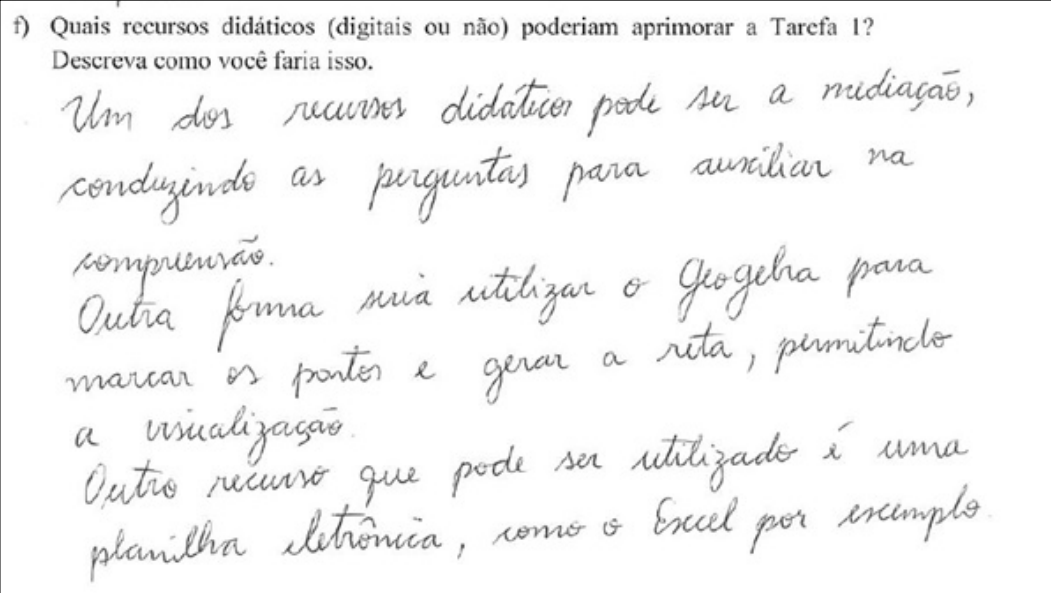 f) Quais recursos didáticos (digitais ou não) poderiam aprimorar a Tarefa 1?
Descreva como você faria isso.
Um dos recursos didáticos pode ser a mediação,
conduzindo as perguntas para auxiliar na
compreensão.
Outra forma seria utilizar o Geogebra para
marcar os pontos e gerar a reta, permitindo
a visualização.
Outro recurso que pode ser utilizado é uma
planilha eletrônica, como o Excel por exemplo.